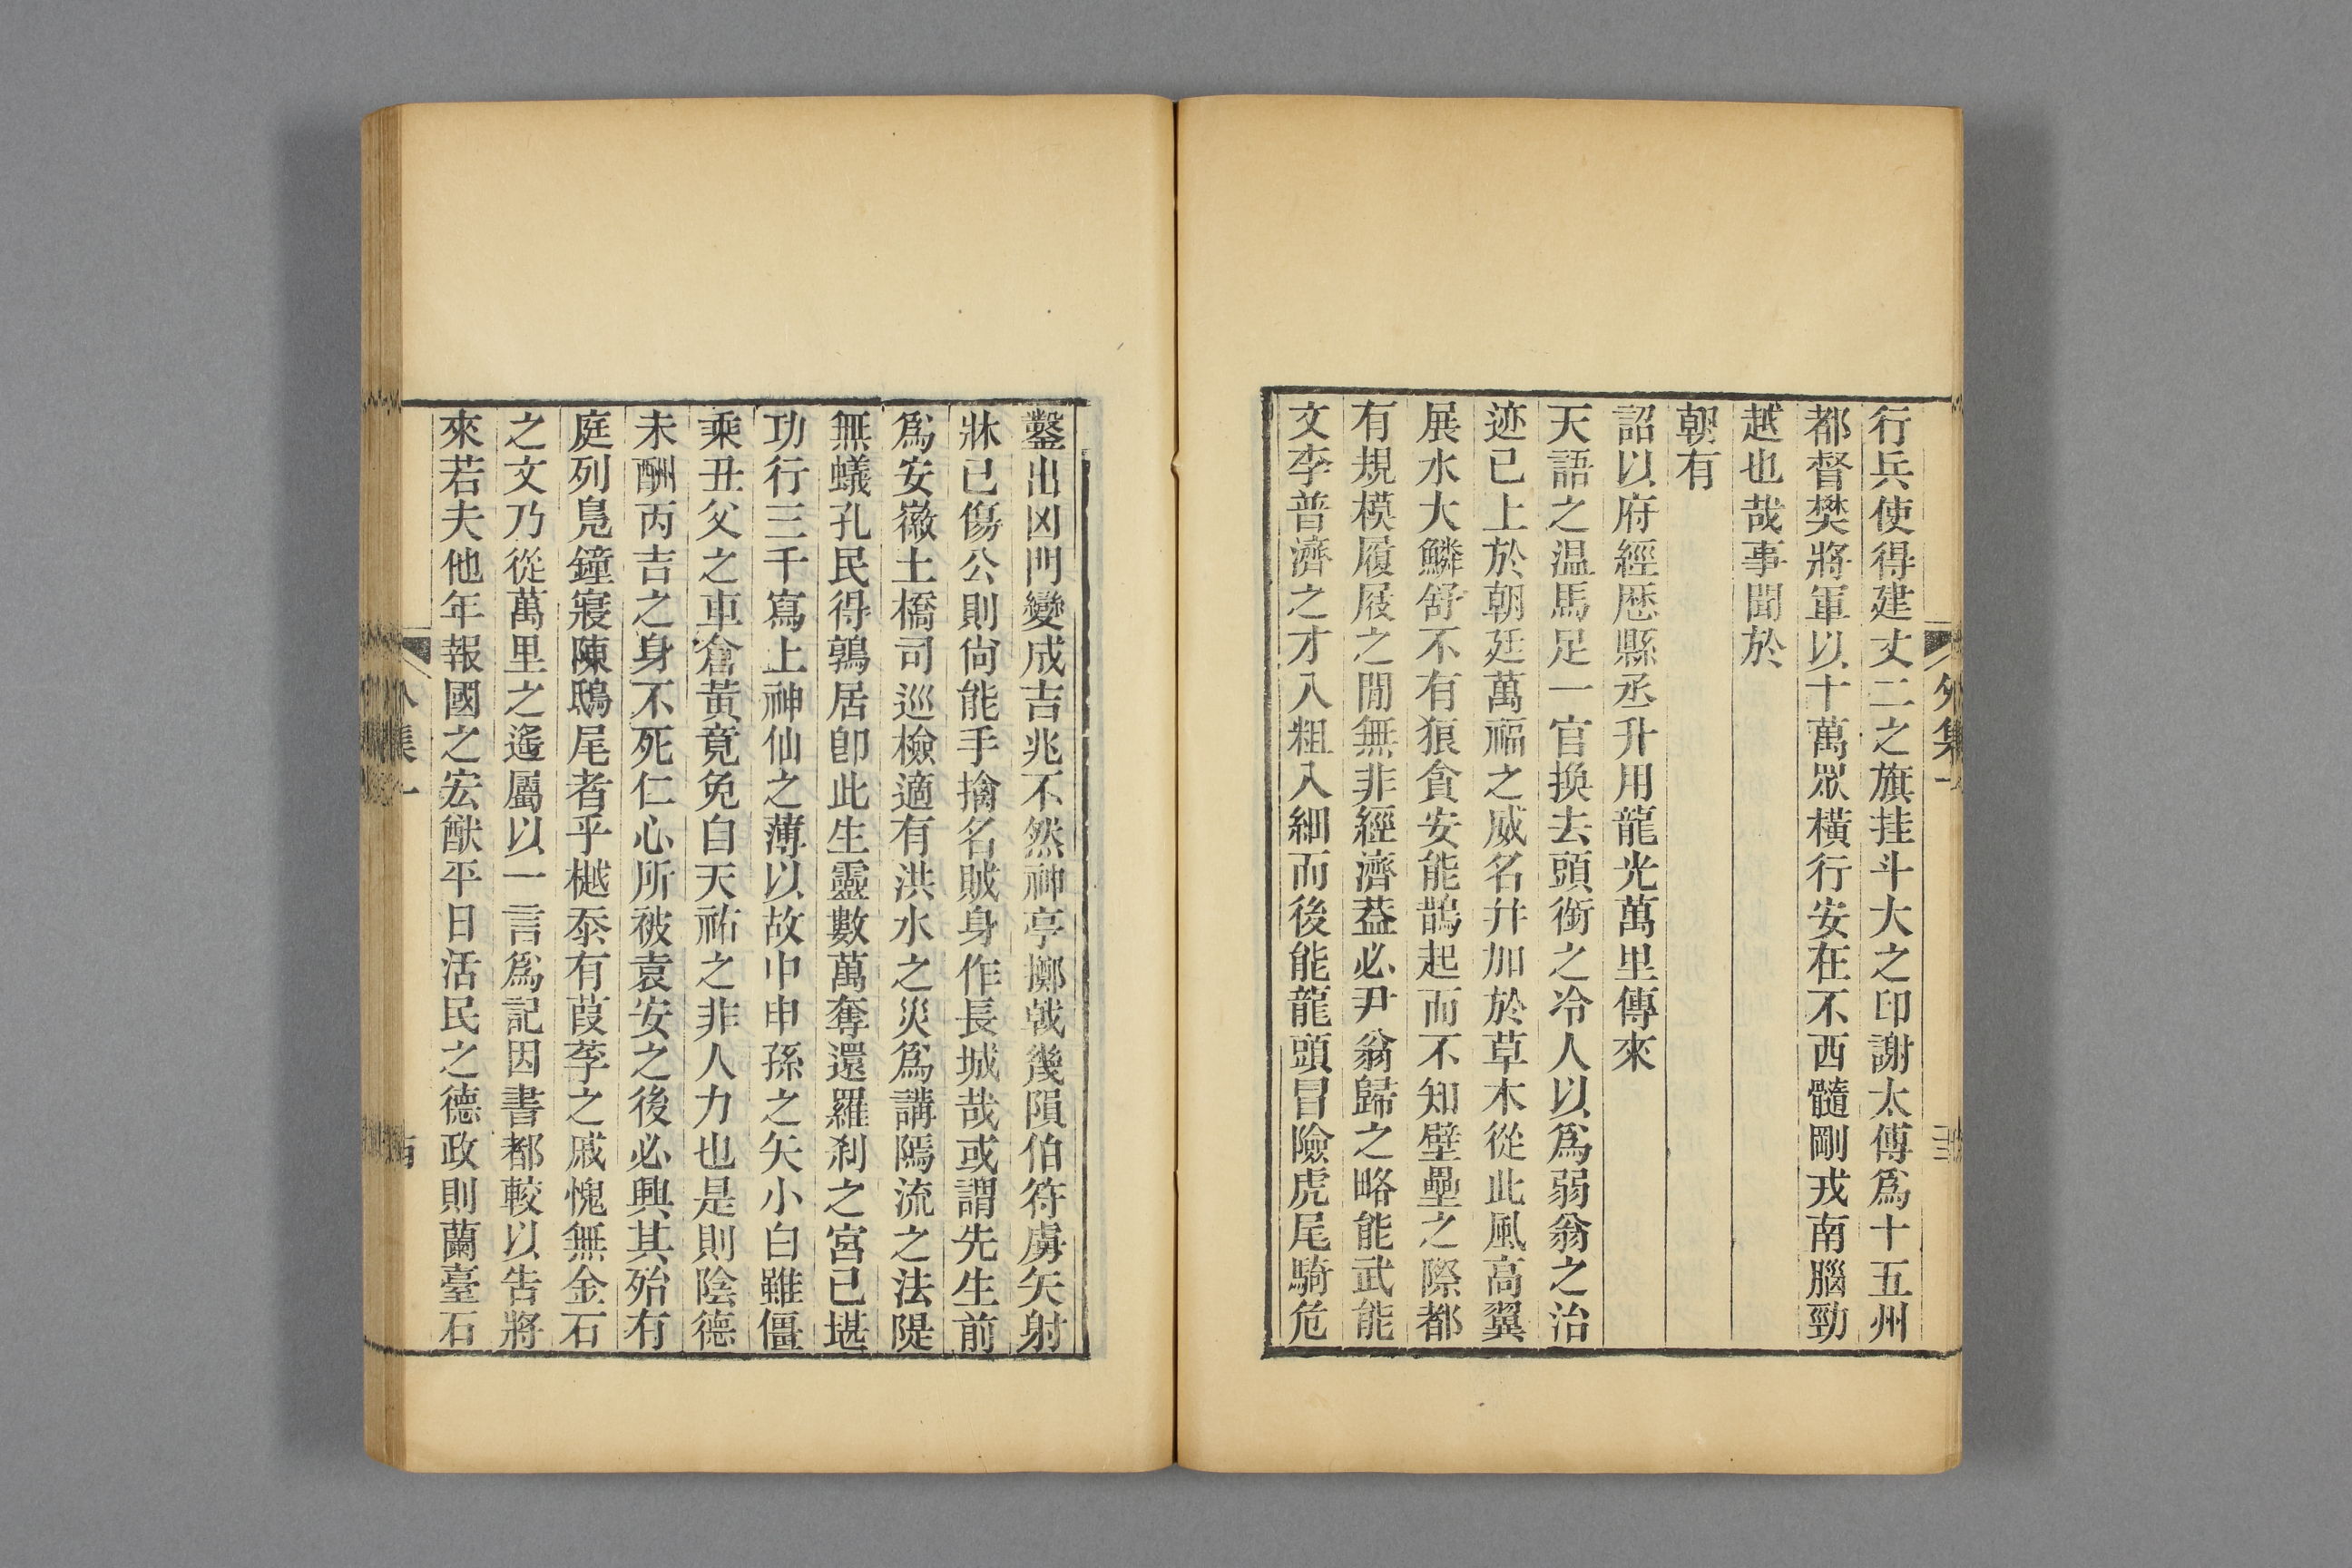 行兵使得建丈二之旗挂斗大之印謝太傅爲十五州
都督樊將軍以十萬眾橫行安在不西髓剛戎南腦勁
越也哉事聞於
朝有
詔以府經歴縣丞升用龍光萬里傳來
天語之温馬足一官換去頭銜之冷人以爲弱翁之治
迹已上於朝廷萬福之威名幷加於草木從此風高翼
展水大鱗舒不有狼貪安能鵲起而不知壁壘之際都
有規模履屐之閒無非經濟葢必尹翁歸之略能武能
文李普濟之才入粗入細而後能龍頭冒險虎尾騎危
外集一
鑿出凶門變成吉兆不然神亭擲戟幾隕伯符虜矢射
牀已傷公則尙能手擒名賊身作長城哉或謂先生前
爲安徽土橋司巡檢適有洪水之災爲講隖流之法隄
無蟻孔民得鶉居卽此生靈數萬奪還羅刹之宮已堪
功行三千寫上神仙之薄以故中申孫之矢小白雖僵
乘丑父之車倉黃竟免自天祐之非人力也是則陰德
未酬丙吉之身不死仁心所被袁安之後必興其殆有
庭列鳧鐘寢陳鴟尾者乎樾忝有葭莩之戚愧無金石
之文乃從萬里之遙屬以一言爲記因書都較以吿將
來若夫他年報國之宏猷平日活民之德政則蘭臺石